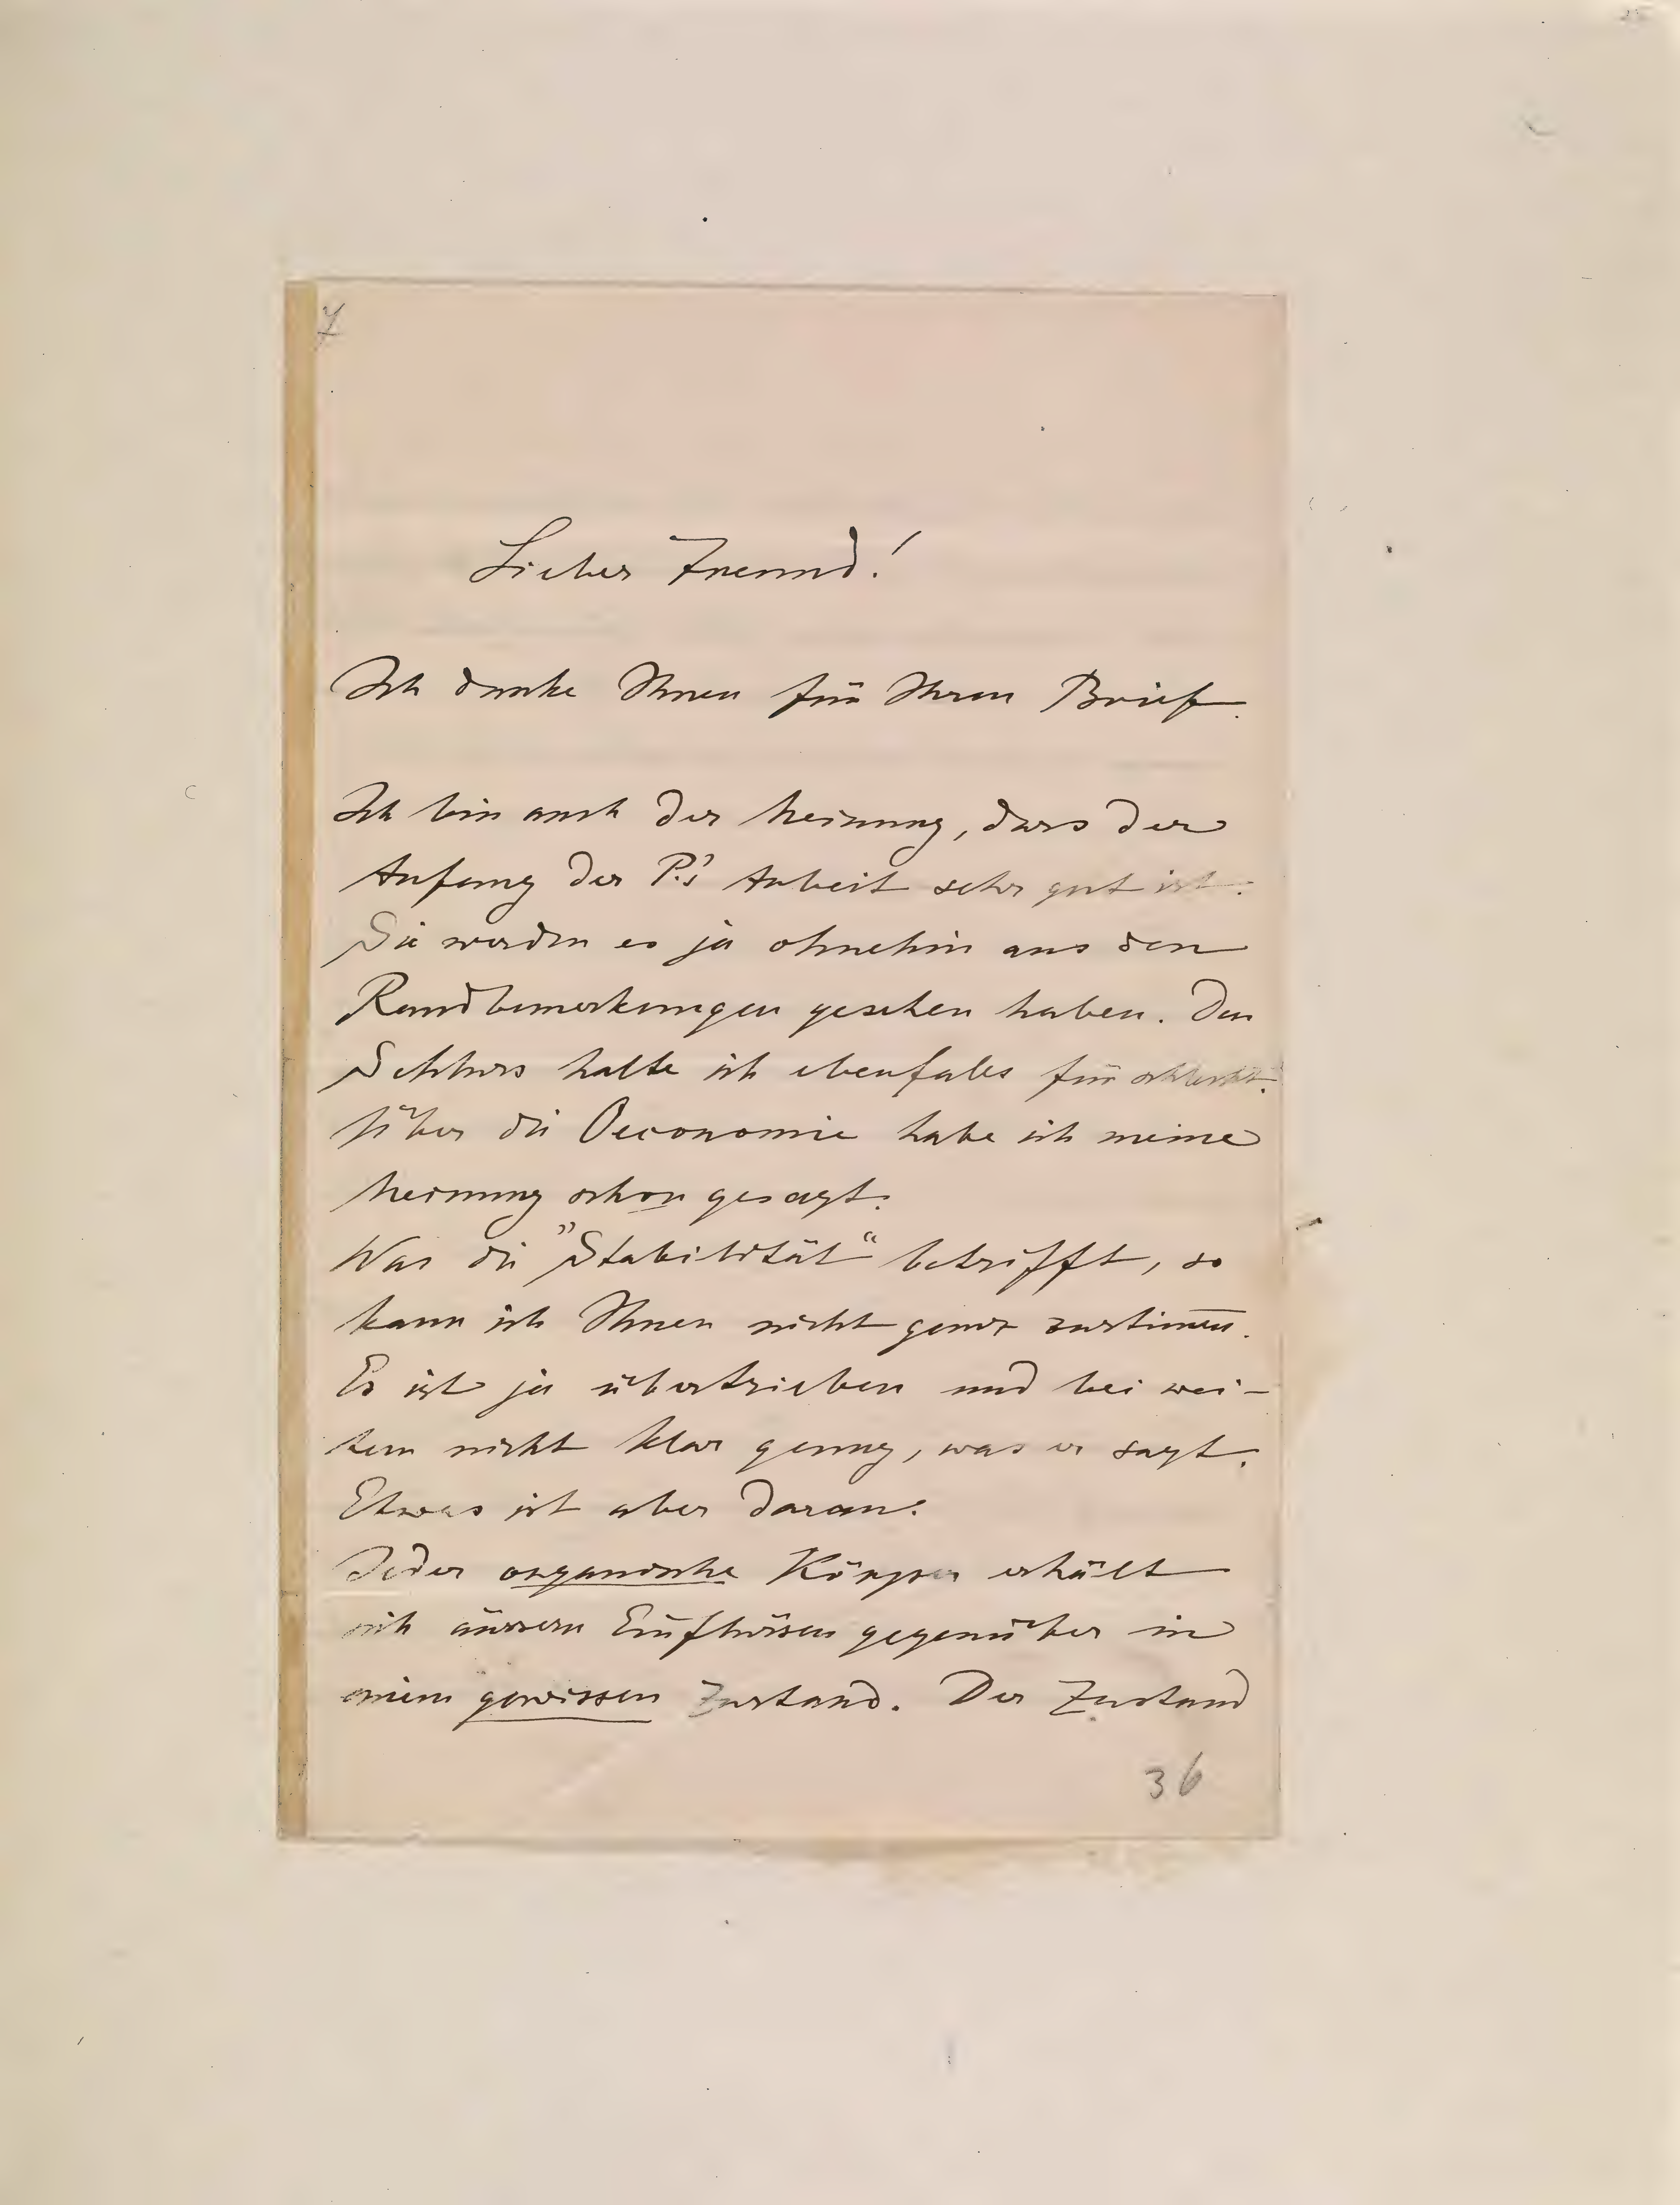 7
Lieber Freund!
Ich danke Ihnen für Ihren Brief.
Ich bin auch der Meinung, dass der
Anfang der P.'s Arbeit sehr gut ist.
Sie werden es ja ohnehin aus den
Randbemerkungen gesehen haben. Den
Schluss halte ich ebenfalls für schlecht.
Über die Oeconomie habe ich meine
Meinung schon gesagt.
Was die "Stabilität" betrifft, so
kann ich Ihnen nicht ganz zustim̅en.
Es ist ja übertrieben und bei wei-
tem nicht klar genug, was er sagt.
Etwas ist aber daran.
Jeder organische Körper erhält
sich äussern Einflüssen gegenüber in
einem gewissen Zustand. Der Zustand
36